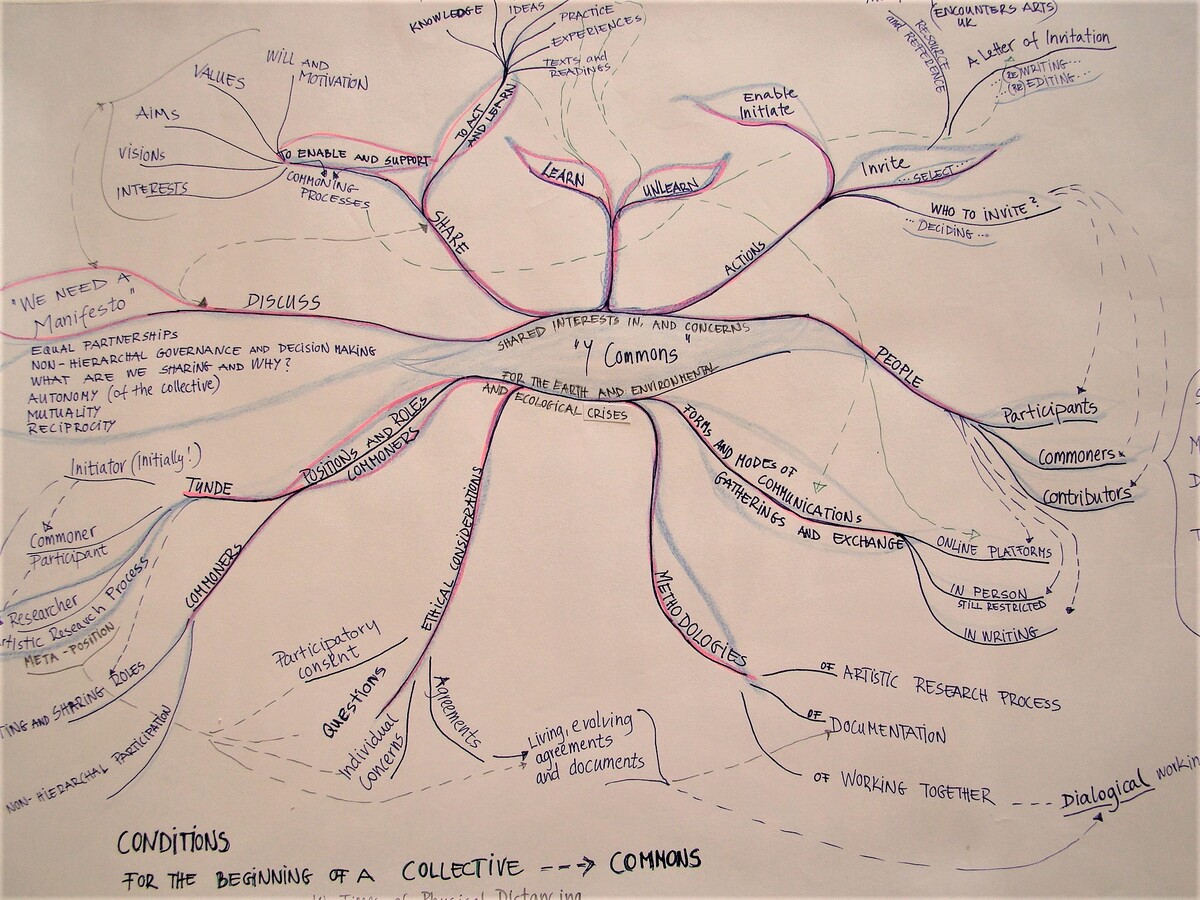 KNOWLEDGE
IDEAS
PRACTICE
EXPERIENCES
TEXTS and
READINGS
TO ACT
AND LEARN
WILL AND
MOTIVATION
VALUES
AIMS
VISIONS
INTERESTS
TO ENABLE AND SUPPORT
COMMONING
PROCESSES
SHARE
LEARN
UNLEARN
Enable
Initiate
ACTIONS
(ENCOUNTERS ARTS)
UK
RESOURCE
and REFERENCE
A Letter of Invitation
(RE)WRITING...
(RE)EDITING...
Invite
...SELECT...
WHO TO INVITE?
...DECIDING...
"WE NEED A
Manifesto"
DISCUSS
EQUAL PARTNERSHIPS
NON-HIERARCHAL GOVERNANCE AND DECISION MAKING
WHAT ARE WE SHARING AND WHY?
AUTONOMY (of the collective)
MUTUALITY
RECIPROCITY
SHARED INTERESTS IN, AND CONCERNS
"Y Commons"
FOR THE EARTH AND ENVIRONMENTAL
AND ECOLOGICAL CRISES
PEOPLE
Participants
Commoners
Contributors
FORMS AND MODES OF
COMMUNICATIONS
GATHERINGS AND EXCHANGE
ONLINE PLATFORMS
IN PERSON
STILL RESTRICTED
IN WRITING
POSITIONS AND ROLES
COMMONERS
TUNDE
Initiator (Initially!)
Commoner
Participant
Researcher
Artistic Research Process
META-POSITION
COMMONERS
TING AND SHARING ROLES
NON-HIERARCHAL PARTICIPATION
ETHICAL CONSIDERATIONS
Participatory
consent
QUESTIONS
Individual
Concerns
Agreements
Living, evolving
agreements
and documents
METHODOLOGIES
OF ARTISTIC RESEARCH PROCESS
OF DOCUMENTATION
OF WORKING TOGETHER
Dialogical workin
CONDITIONS
FOR THE BEGINNING OF A COLLECTIVE ---> COMMONS
Times of Physical Distancing